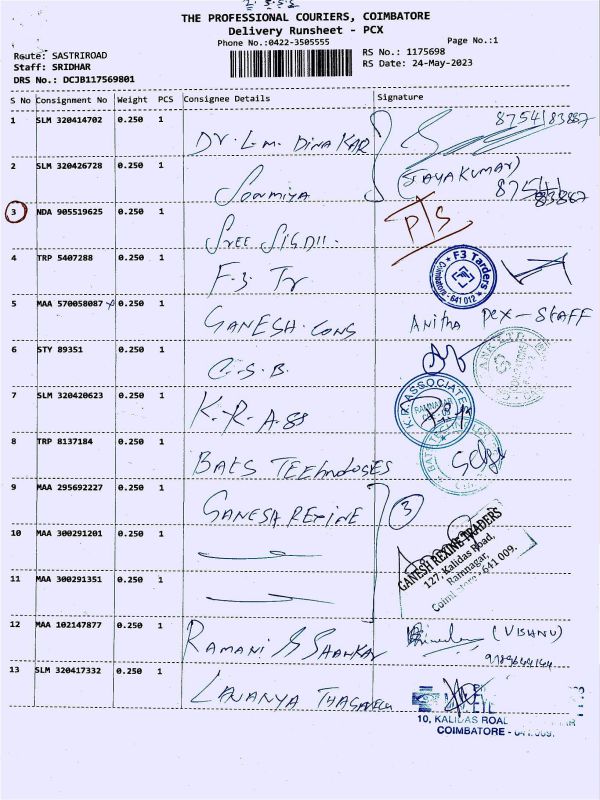 THE PROFESSIONAL COURIERS, COIMBATORE
Delivery Runsheet - PCX
Phone No.:0422-3505555 Page No.:1
Route: SASTRIROAD RS No.: 1175698
Staff: SRIDHAR RS Date: 24-May-2023
DRS No.: DCJB117569801
S No Consignment No Weight PCS Consignee Details Signature
1 SLM 320414702 0.250 1 Dr. L.M. DINAKAR
2 SLM 320426728 0.250 1 Sowmiya (JAYAKUMAR)
3 NDA 905519625 0.250 1 SREE P/S
4 TRP 5407288 0.250 1 F-3 Tr F3 Tarders Coimbatore - 641 012
5 MAA 570058087 0.250 1 GANESH CONS Anitha PCX-STAFF
6 STY 89351 0.250 1 C.S.B.
7 SLM 320420623 0.250 1 K.R.ASS K.R. ASSOCIATES RAMNAGAR
8 TRP 8137184 0.250 1 BATS
9 MAA 295692227 0.250 1 GANESH REXINE 3
10 MAA 300291201 0.250 1 GANESH REXINE TRADERS
127, Kalidas Road,
Ramnagar,
641 009.
11 MAA 300291351 0.250 1
12 MAA 102147877 0.250 1 RAMANI & SHANKAR (VISHNU)
13 SLM 320417332 0.250 1 LAVANYA
10, KALIDAS ROAD
COIMBATORE -